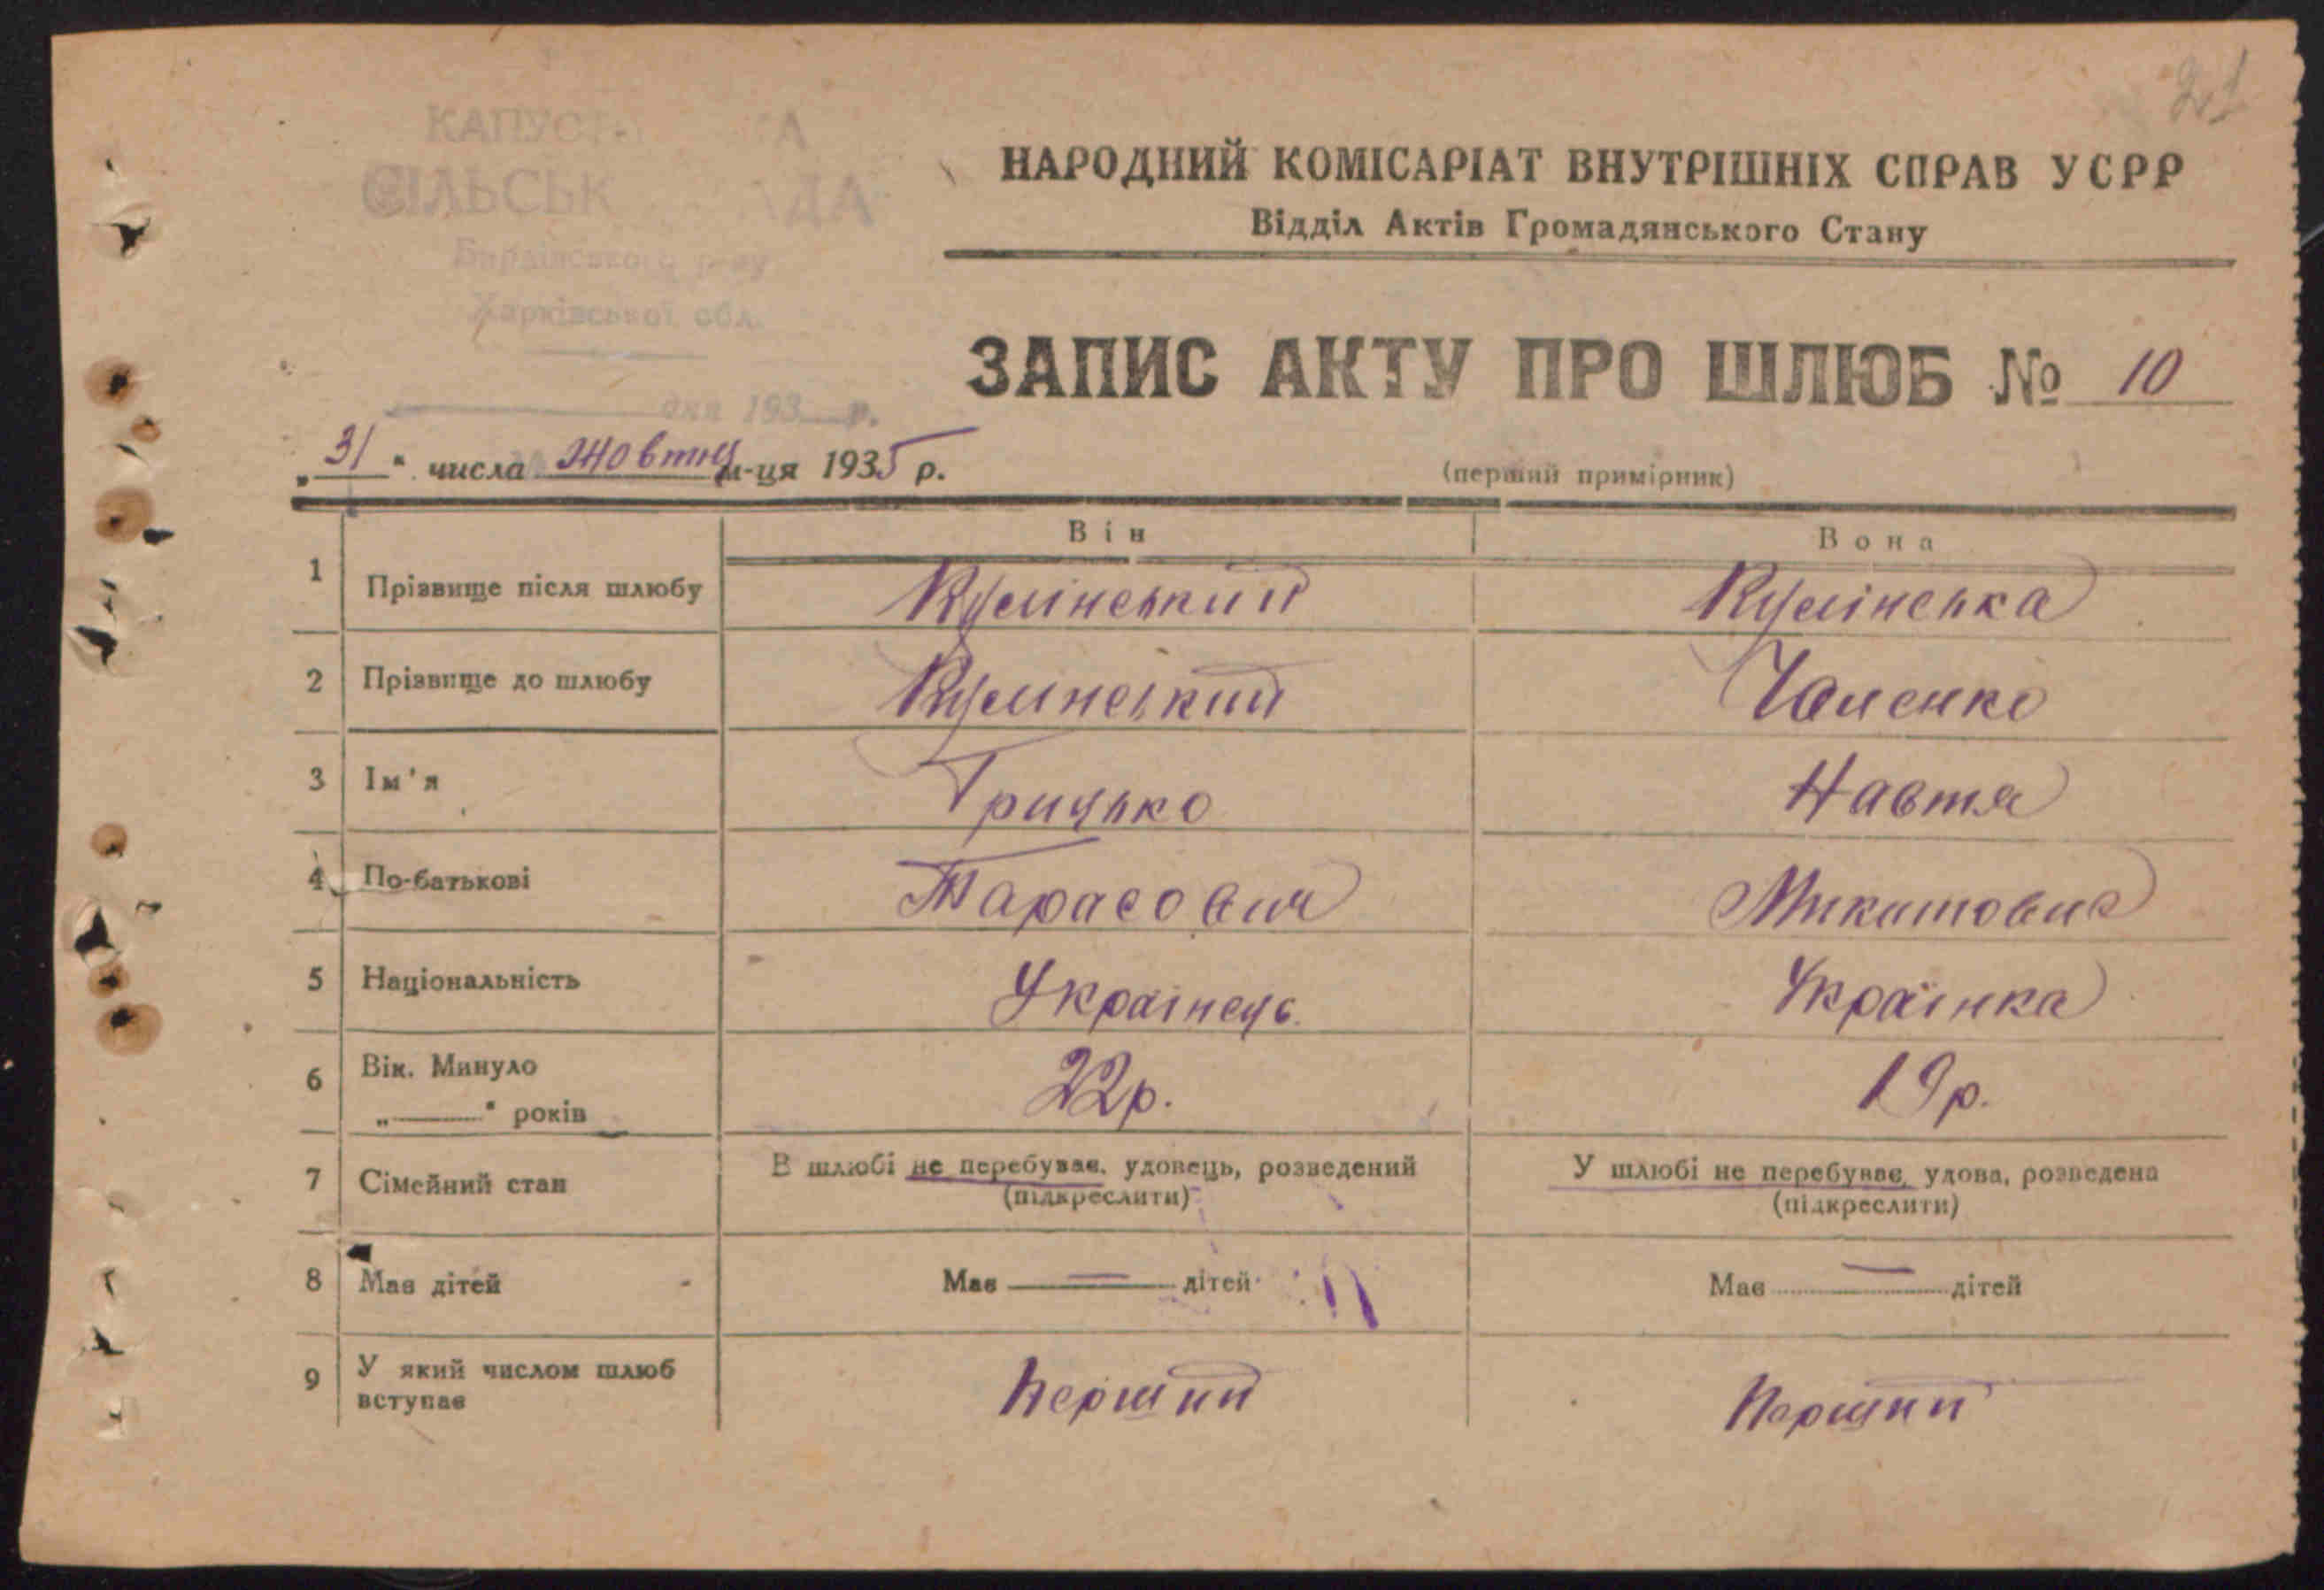 21
СІЛЬСЬК
Харківської обл.
дня 193 р.
НАРОДНИЙ КОМІСАРІАТ ВНУТРІШНІХ СПРАВ УСРР
Відділ Актів Громадянського Стану
ЗАПИС АКТУ ПРО ШЛЮБ № 10
„31“ числа Жовтня м-ця 1935 р.
(перший примірник)
Він Вона
1 Прізвище після шлюбу Кулінський Кулінська
2 Прізвище до шлюбу Кулінський Чаленко
3 Ім'я Грицько Навтя
4 По-батькові Тарасович Микитовна
5 Національність Українець Українка
6 Вік. Минуло 22р. 19р.
„ “ років
7 Сімейний стан В шлюбі не перебуває, удовець, розведений У шлюбі не перебуває, удова, розведена
(підкреслити) (підкреслити)
8 Має дітей Має — дітей Має — дітей
9 У який числом шлюб Перший Перший
вступає